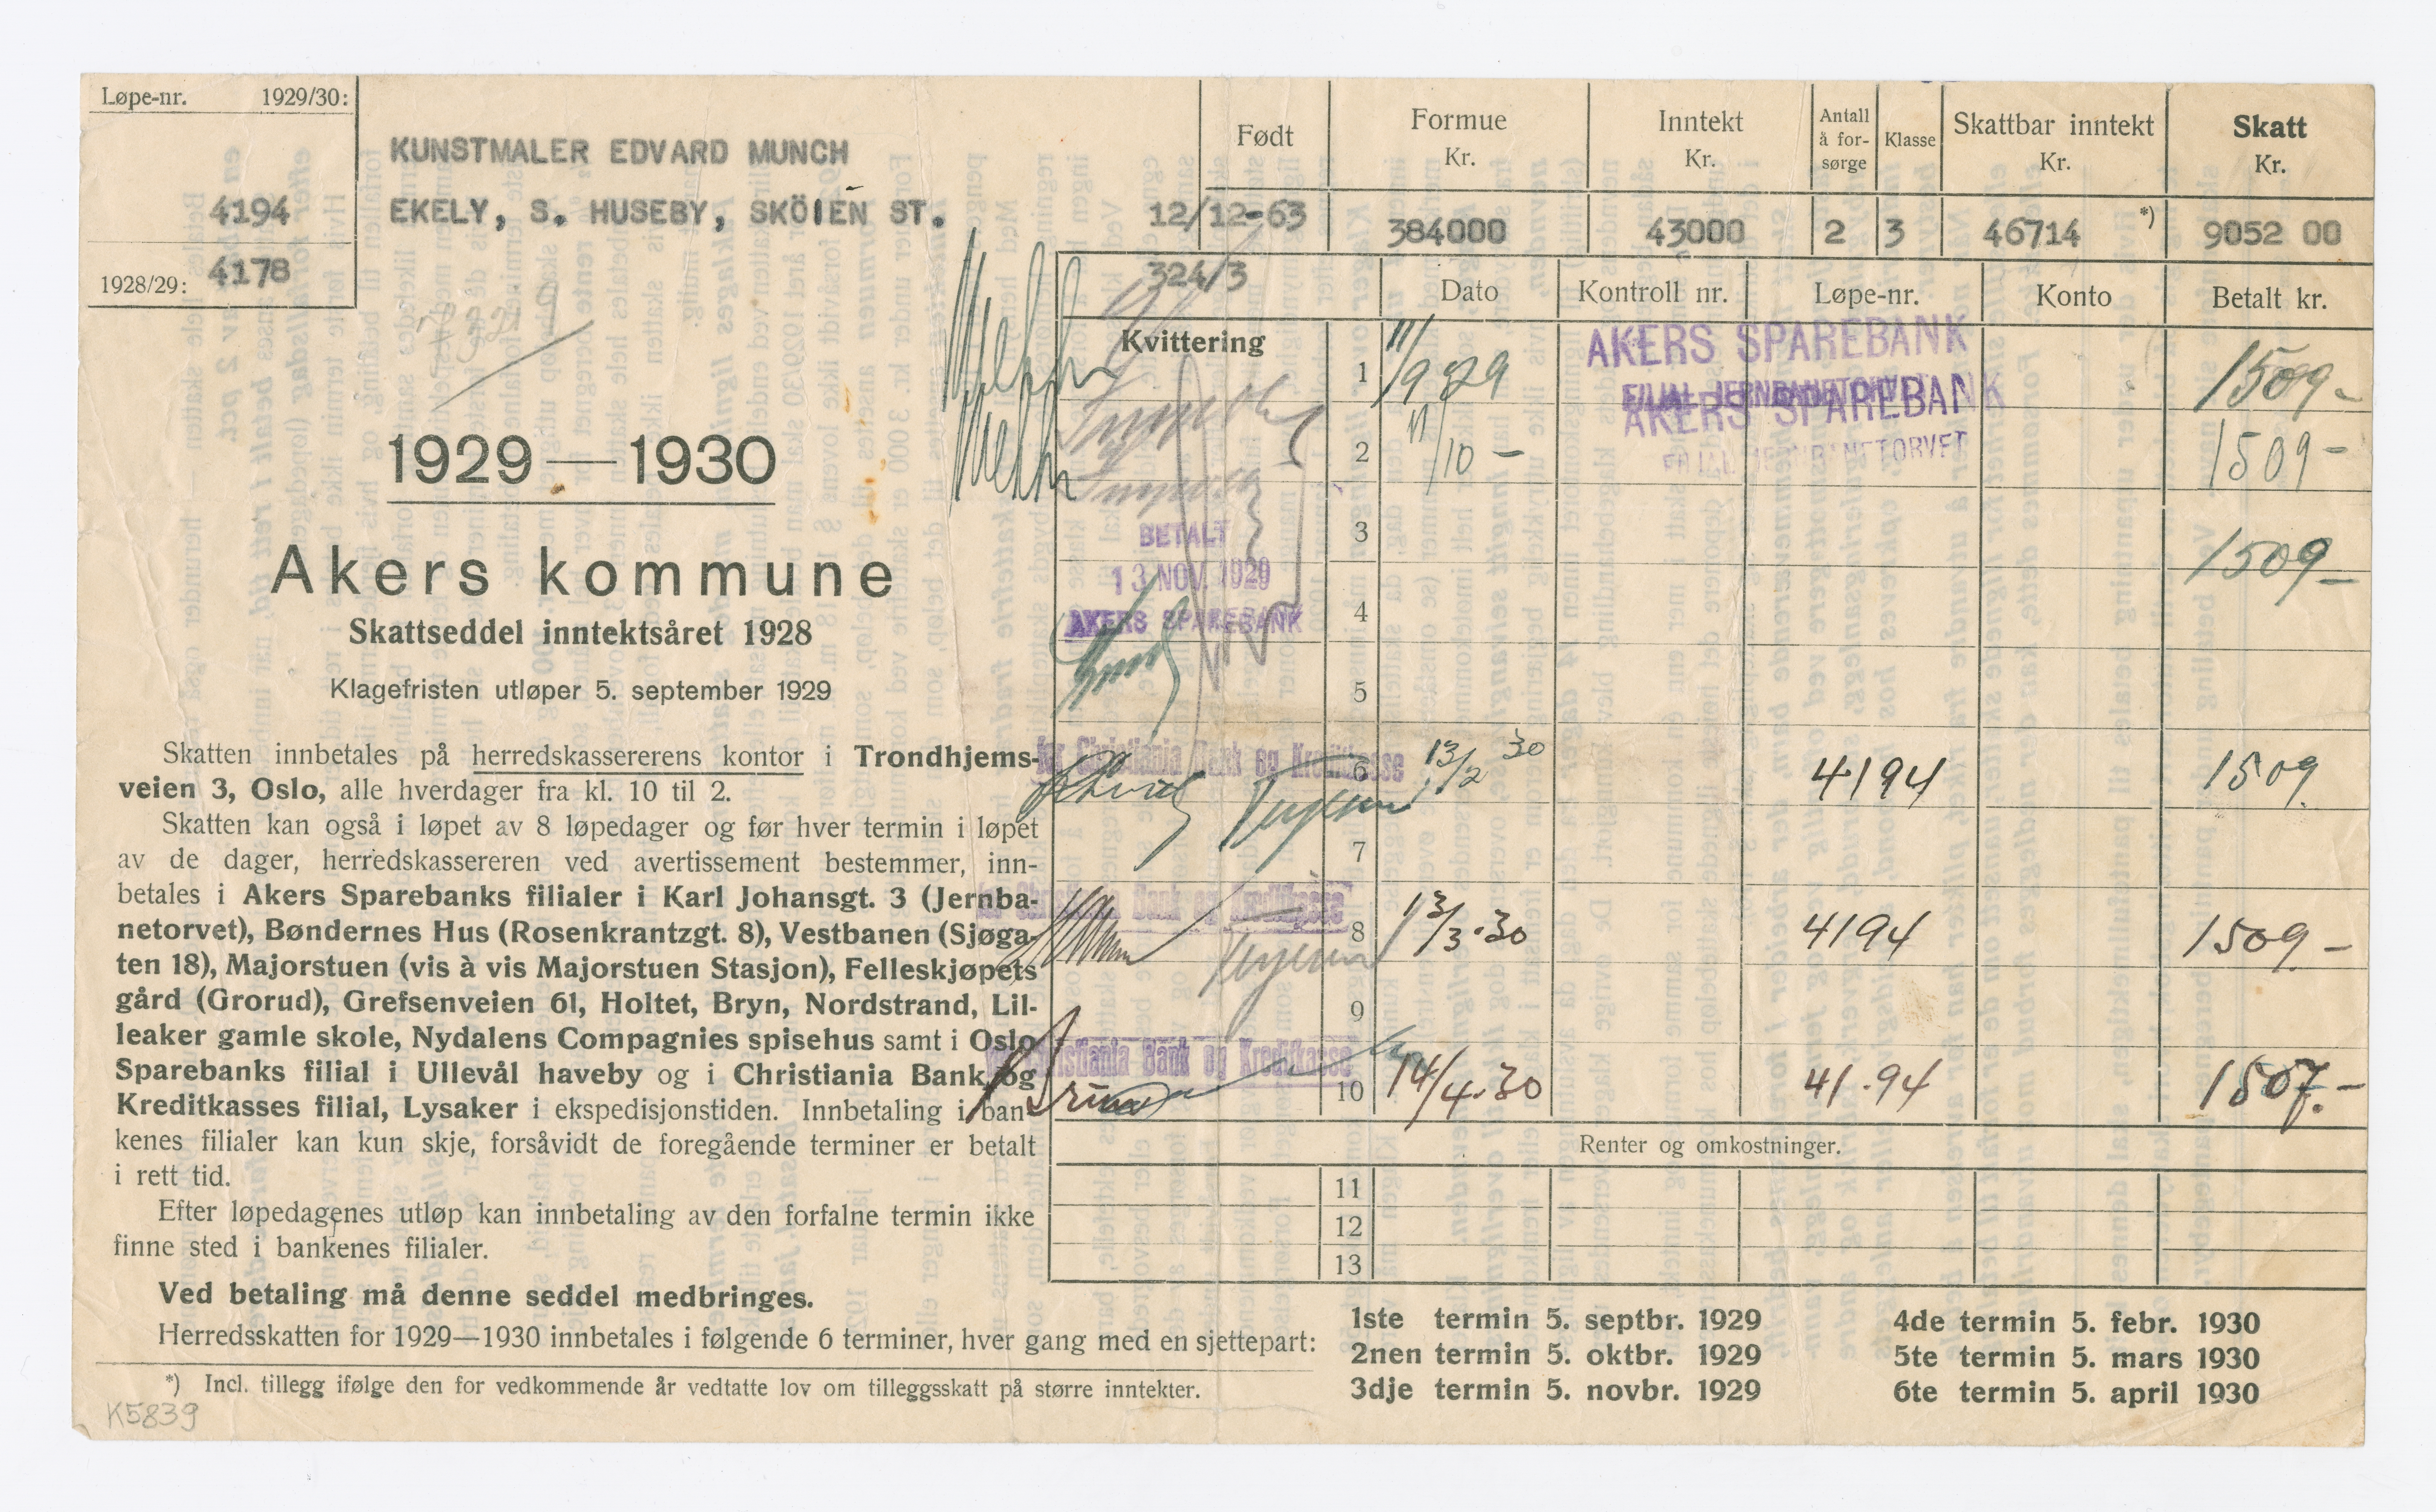 Løpe-nr. 1929/30:
4194
1928/29: 4178
KUNSTMALER EDVARD MUNCH
EKELY, S. HUSEBY, SKÖIEN ST.
Født
12/12-63
Formue
Kr.
384000
Inntekt
Kr.
43000
Antall
å for-
sørge
2
Klasse
3
Skattbar inntekt
Kr.
46714 *)
Skatt
Kr.
9052 00
1929—1930
Akers kommune
Skattseddel inntektsåret 1928
Klagefristen utløper 5. september 1929
Skatten innbetales på herredskassererens kontor i Trondhjems-
veien 3, Oslo, alle hverdager fra kl. 10 til 2.
Skatten kan også i løpet av 8 løpedager og før hver termin i løpet
av de dager, herredskassereren ved avertissement bestemmer, inn-
betales i Akers Sparebanks filialer i Karl Johansgt. 3 (Jernba-
netorvet), Bøndernes Hus (Rosenkrantzgt. 8), Vestbanen (Sjøga-
ten 18), Majorstuen (vis à vis Majorstuen Stasjon), Felleskjøpets
gård (Grorud), Grefsenveien 61, Holtet, Bryn, Nordstrand, Lil-
leaker gamle skole, Nydalens Compagnies spisehus samt i Oslo
Sparebanks filial i Ullevål haveby og i Christiania Bank og
Kreditkasses filial, Lysaker i ekspedisjonstiden. Innbetaling i ban-
kenes filialer kan kun skje, forsåvidt de foregående terminer er betalt
i rett tid.
Efter løpedagenes utløp kan innbetaling av den forfalne termin ikke
finne sted i bankenes filialer.
Ved betaling må denne seddel medbringes.
Herredsskatten for 1929—1930 innbetales i følgende 6 terminer, hver gang med en sjettepart:
*) Incl. tillegg ifølge den for vedkommende år vedtatte lov om tilleggsskatt på større inntekter.
K5839
324/3
Kvittering Dato Kontroll nr. Løpe-nr. Konto Betalt kr.
1 11/9 29 AKERS SPAREBANK 1509-
FILIAL JERNBANETORVET
AKERS SPAREBANK
2 11/10 - 1509-
FILIAL JERNBANETORVET
BETALT
3 1509-
13 NOV. 1929
4
AKERS SPAREBANK
5
for Christiania Bank og Kreditkasse
6 13/2 30 4194 1509.
7
for Christiania Bank og Kreditkasse
8 13/3.30 4194 1509.-
9
Christiania Bank og Kreditkasse
10 14/4.30 41.94 1507.-
Renter og omkostninger.
11
12
13
1ste termin 5. septbr. 1929
2nen termin 5. oktbr. 1929
3dje termin 5. novbr. 1929
4de termin 5. febr. 1930
5te termin 5. mars 1930
6te termin 5. april 1930